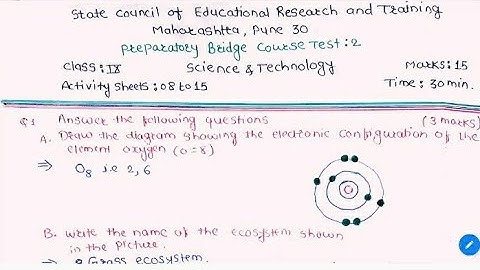 State Council of Educational Research and Training
Maharashtra, Pune 30
Preparatory Bridge Course Test: 2
Class: IX Science & Technology Marks: 15
Activity sheets: 08 to 15 Time: 30 min.
Q1 Answer the following questions (3 marks)
A. Draw the diagram showing the electronic configuration of the
element oxygen (O=8)
⇒ O8 i.e 2,6
B. Write the name of the ecosystem shown
in the picture.
⇒ Grass ecosystem.